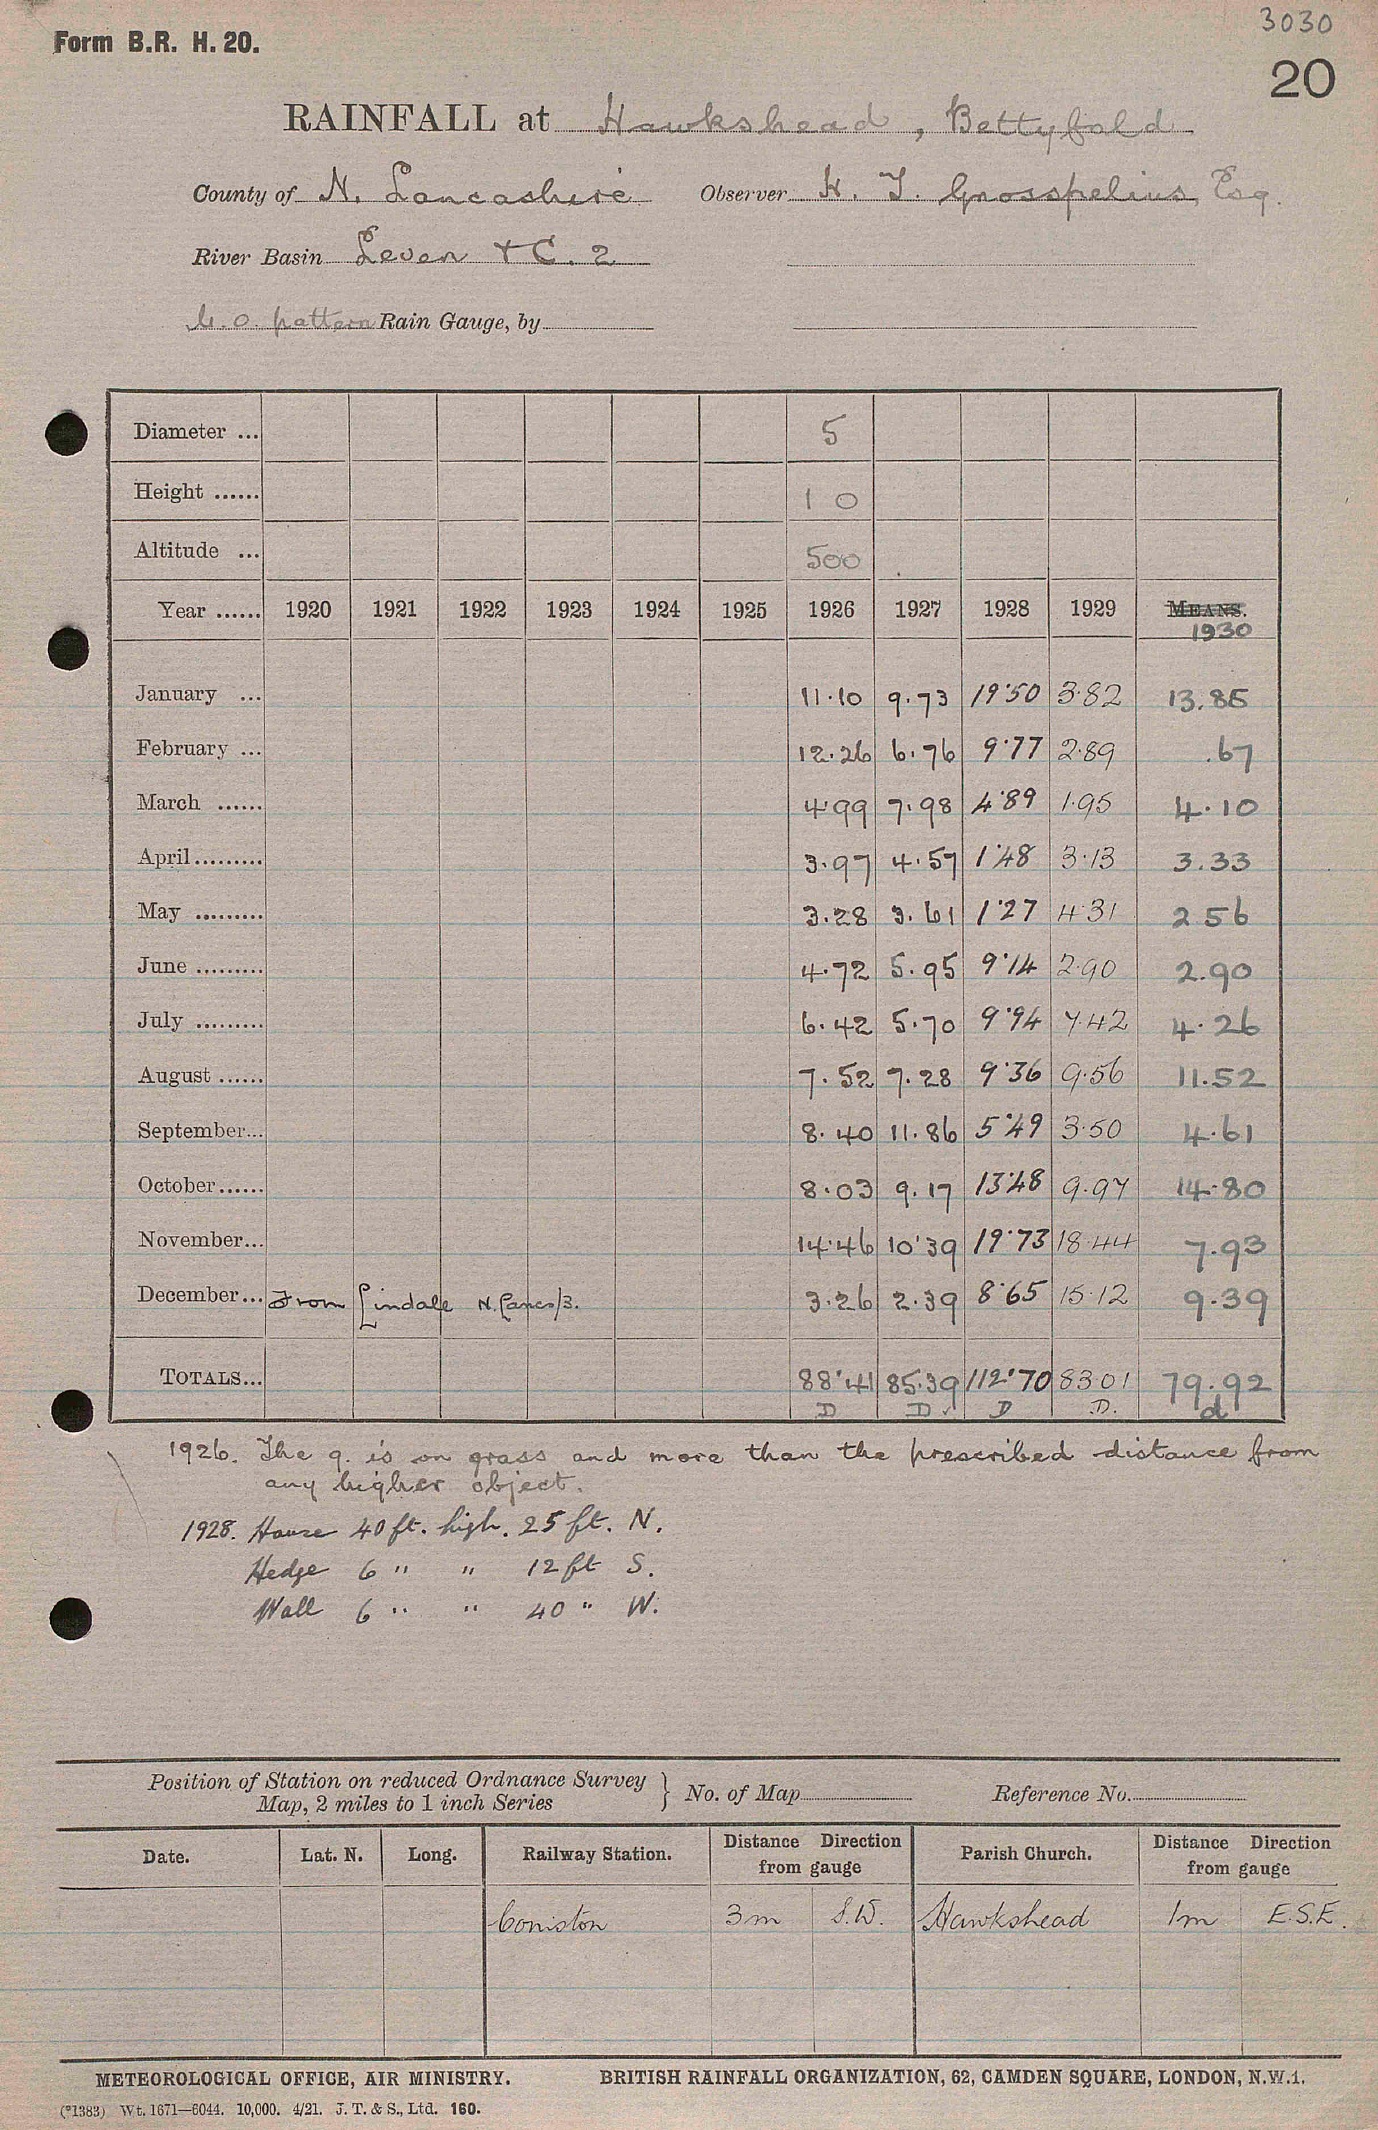 3030
Form B.R. H. 20.
20
RAINFALL at Hawkshead, Bettyfold
County of N. Lancashire Observer H. T. Grosspelius, Esq.
River Basin Leven & C. 2
M.O. pattern Rain Gauge, by
Diameter ... 5
Height ...... 1 0
Altitude ... 500
Year ...... 1920 1921 1922 1923 1924 1925 1926 1927 1928 1929 MEANS.
1930
January ... 11.10 9.73 19.50 3.82 13.85
February ... 12.26 6.76 9.77 2.89 .67
March ...... 4.99 7.98 4.89 1.95 4.10
April ......... 3.97 4.57 1.48 3.13 3.33
May ......... 3.28 3.61 1.27 4.31 2 56
June ......... 4.72 5.95 9.14 2.90 2.90
July ......... 6.42 5.70 9.94 7.42 4.26
August ...... 7.52 7.28 9.36 9.56 11.52
September... 8.40 11.86 5.49 3.50 4.61
October...... 8.03 9.17 13.48 9.97 14.80
November... 14.46 10.39 19.73 18.44 7.93
December... From Lindale N. Lancs/3. 3.26 2.39 8.65 15.12 9.39
TOTALS... 88.41 85.39 112.70 83 01 79.92
D D ✓ D D. d
1926. The g. is on grass and more than the prescribed distance from
any higher object.
1928. House 40 ft. high. 25 ft. N.
Hedge 6 " " 12 ft S.
Wall 6 " " 40 " W.
Position of Station on reduced Ordnance Survey
Map, 2 miles to 1 inch Series } No. of Map Reference No.
Date. Lat. N. Long. Railway Station. Distance Direction from gauge Parish Church. Distance Direction from gauge
Coniston 3m S.W. Hawkshead 1m E.S.E.
METEOROLOGICAL OFFICE, AIR MINISTRY. BRITISH RAINFALL ORGANIZATION, 62, CAMDEN SQUARE, LONDON, N.W.1.
(*1383) Wt. 1671—6044. 10,000. 4/21. J. T. & S., Ltd. 160.